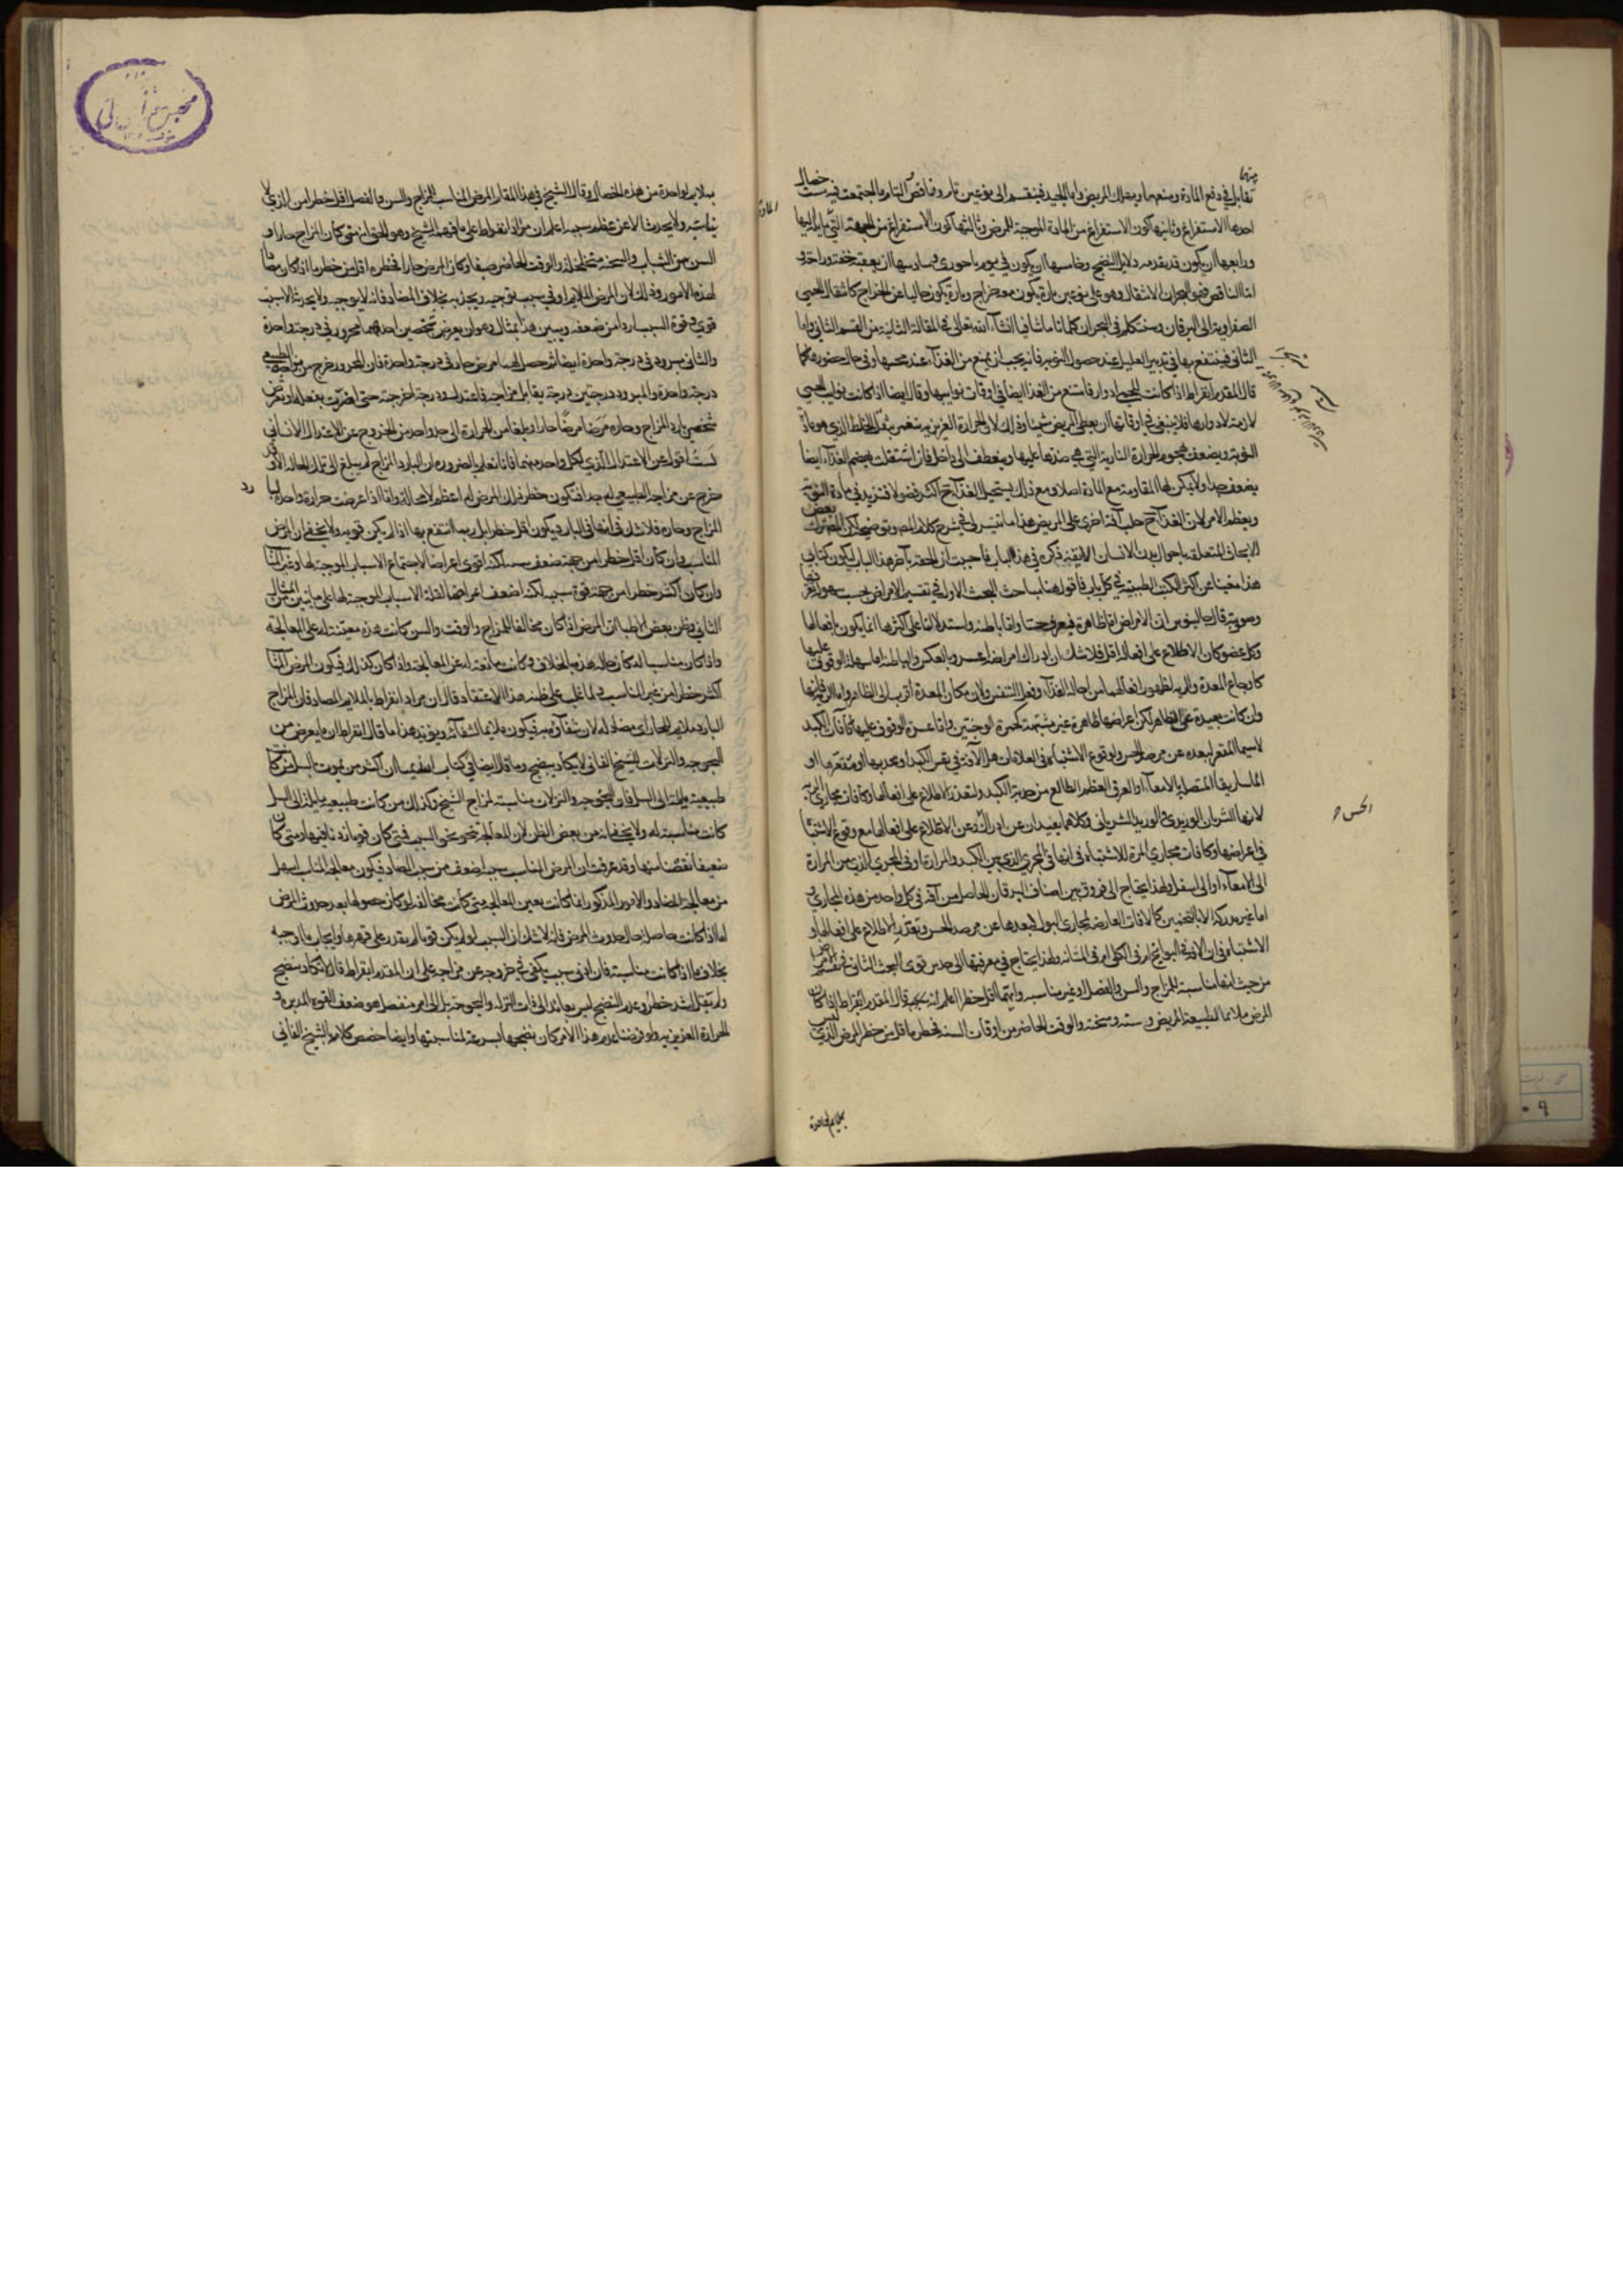 منها
تقابل في دفع المادة ومنهما ويهلك المريض واما الجيد فينقسم الى نوعين تام وناقص التام ما اجتمعت فيه ست خصال
احدها الاستفراغ وثانيها كون الاستفراغ من المادة الموجبة للمرض وثالثها كون الاستفراغ من الجهة التي مايل اليها
ورابعها ان يكون قد تقدمه دلايل النضج وخامسها ان يكون في يوم باحوري وسادسها ان يعقبه خفة وراحة و
اما الناقص فهو البحران الانتقال وهو على نوعين تارة يكون مع خراج وتارة يكون خاليا عن الخراج كانتقال الحمى
الصفراوية الى اليرقان وسنتكلم في البحران كلاما تاما شافيا انشاء الله تعالى في المقالة الثانية من القسم الثاني واما
الثاني فينتفع بها في تدبير العليل عند حصول النوبة فانه يجب ان يمنع من الغذاء عند مجيها وفي حال حضورها كما
قال المقدم ابقراط اذا كانت للحمى ادوار فامتنع من الغذا ايضا في اوقات نوايبها وقال ايضا اذا كانت نوايب الحمى
لازمة لادوارها فلا ينبغي في اوقاتها ان يعطى المريض شيئا وذلك لان الحرارة الغريزية تنغمر بثقل الخلط الذي هو مادة
النوبة ويضعف هجوم الحرارة النارية التي هي ضدها عليها وينعطف الى داخل فان اشتغلت بهضم الغذاء ايضا
يضعف جدا ولا يمكن لها المقاومة مع المادة اصلا ومع ذلك يستحيل الغذاء ح اكثره فضولا فتزيد في مادة النوبة
ويعظم الامر لان الغذاء ح جلب آفة اخرى على المريض هذا ما تيسر لي في شرح كلام المصـ وتوضيحه لكن المصـ ترك بعض
الابحاث المتعلقة باحوال بدن الانسان الاليقة ذكره في هذا الباب فاحببت ان الحقه بآخر هذا الباب ليكون كتابي
هذا مغنيا عن اكثر الكتب الطبية في كل باب فاقول هنا مباحث البحث الاول في تقسيم الامراض بحسب
قال جالينوس ان الامراض اما ظاهرة فيعرف حسا واما باطنة واستدلالنا على اكثرها انما يكون بافعالها
وكل عضو كان الاطلاع على افعاله اقل فلا شك ان ادراك امراضه اعسر وبالعكس والباطنة اما سهلة الوقوف عليها
كاوجاع المعدة والرية لظهور افعالهما من احالة الغذاء وفعل التنفس ولان مكان المعدة اقرب الى الظاهر واما الرية فانها
وان كانت بعيدة عن الظاهر لكن اعراضها ظاهرة غير مشتبهة كحمرة الوجنتين واما عسرة الوقوف عليها كآفات الكبد
لاسيما المقعر لبعده عن مرصد الحس ولوقوع الاشتباه في العلامات هل الآفة في نفس الكبد او محدبها او مقعرها او
الماساريقا المتصل بالامعاء او العرق العظيم الطالع من حدبة الكبد ولتعذر الاطلاع على افعالها وكآفات مجاري الرية
لانها الشريان الوريدي والوريد الشرياني وكلاهما بعيدان عن ادراك وعن الاطلاع على افعالها مع وقوع الاشتباه
في اعراضها وكآفات مجاري المرة للاشتباه في انها في المجرى الذي بين الكبد والمرارة او في المجرى الذي من المرارة
الى الامعاء او الى اسفل ولهذا يحتاج الى فروق بين اصناف اليرقان الحاصل من آفة في كل واحد من هذه المجاري و
اما غير مدركة الا بالتخمين كالآفات العارضة لمجاري البول لبعدها عن مرصد الحس وتعذر الاطلاع على افعالها و
الاشتباه في ان الآفة في البرابخ ام في الكلى ام في المثانة ولهذا يحتاج في معرفتها الى حدس قوى البحث الثاني في تقسيم الامراض
من حيث انها مناسبة للمزاج والسن والفصل او غير مناسبة وايهما اقل خطرا اعلم انه قال المقدم ابقراط اذا كان
المرض ملائما لطبيعة المريض وسنه وسحنته والوقت الحاضر من اوقات السنة فخطره اقل من خطر المرض الذي ليس
بملايم لواحدة
الحس ه
بملايم لواحدة من هذه الخصال وقال الشيخ في هذا المقام المرض المناسب للمزاج والسن والفصل اقل خطرا من الذي لا
يناسبه ولا يحدث الا عن عظم سببه اعلم ان مراد ابقراط على ما فهمه الشيخ وهو الحق انه متى كان المزاج حارا و
السن سن الشباب والسحنة متخلخلة والوقت الحاضر صيفا وكان المرض حارا فخطره اقل من خطر ما اذا كان مضادا
لهذه الامور وذلك لان المرض الملايم ادنى سبب توجبه ويجذبه بخلاف المضاد فانه لا يوجبه ولا يحدثه الا سبب
قوي وقوة السبب اردا من ضعفه ويبين هذا بمثال وهو ان يعرض شخصين احدهما محرور في درجة واحدة
والثاني مبرود في درجة واحدة ايضا ثم حصل لهما مرض حار في درجة واحدة فان المحرور خرج من مزاجه الطبيعي
درجة واحدة والمبرود درجتين درجة يقابل مزاجه فاعتدل ودرجة اخرجته حتى اضرت بفعله او نعرض
شخصين بارد المزاج وحاره مرضا مرضا حارا وبلغا من الحرارة الى حد واحد من الخروج عن الاعتدال الانساني
لست اقول عن الاعتدال الذي لكل واحد منهما فانا نعلم بالضرورة ان البارد المزاج لم يبلغ الى تلك الحالة الا وقد
خرج عن مزاجه الطبيعي جدا فتكون خطر ذلك المرض له اعظم لا محالة واما اذا عرضت حرارة واحدة لبارد
المزاج وحاره فلا شك في انها في البارد يكون اقل خطرا بل ربما انتفع بها اذا لم يكن قوية ولا يخفى ان المرض
المناسب وان كان اقل خطرا من جهة ضعف سببه لكنه اقوى اعراضا لاجتماع الاسباب الموجبة لها وغير المناسب
وان كان اكثر خطرا من جهة قوة سببه لكنه اضعف اعراضا لقلة الاسباب الموجبة لها على ما تبين من المثال
الثاني وظن بعض الاطبا ان المرض اذا كان مخالفا للمزاج والوقت والسن كانت هذه معينة له على المعالجة
واذا كان مناسبا له كان حاله هذه بالخلاف وكانت مانعة له عن المعالجة واذا كان كذلك فيكون المرض المناسب
اكثر خطرا من غير المناسب ولما غلب على ظنه هذا الاعتقاد قال ان مراد ابقراط بالملايم المضاد فان المزاج
البارد ملايم للحار اي مضاد له لان شفاؤه به فيكون ملايما لشفائه ويؤيد هذا ما قال ابقراط ان ما يعرض من
البحوحة والنزلات للشيخ الفاني لا يكاد ينضج وما قال ايضا في كتاب ابيذيميا ان اكثر من يموت بالسل من كان
طبيعته مايلة الى السل فان البحوحة والنزلات مناسبة لمزاج الشيخ وكذلك من كانت طبيعته مايلة الى السل
كانت مناسبة له ولا يخفى انه من بعض الظن لان المعالجة تنحو نحو السبب فمتى كان قويا زدنا فيها ومتى كان
ضعيفا نقصنا منها وقد عرفت ان المرض المناسب سببه اضعف من سبب المضاد فيكون معالجة المناسب اسهل
من معالجة المضاد والامور المذكورة انما كانت تعين المعالجة متى كانت مخالفة لو كان حصولها بعد حدوث المرض
اما اذا كانت حاصلة حال حدوث المرض فانه لا شك ان السبب لو لم يكن قويا لم يقدر على قهرها وايجاب ما اوجبه
بخلاف ما اذا كانت مناسبة فان ادنى سبب يكفي في خروجه عن مزاجه على ان المقدم ابقراط قال لا تكاد تنضج
ولم يقل اشد خطرا وعدم النضج ليس بعائد الى ذات النزلة والبحوحة بل الى امر منفصل هو ضعف القوة المدبرة و
الحرارة الغريزية ولو فرضنا عدم هذا الامر كان نضجها اسرع لمناسبتها وايضا خصص كلامه بالشيخ الفاني